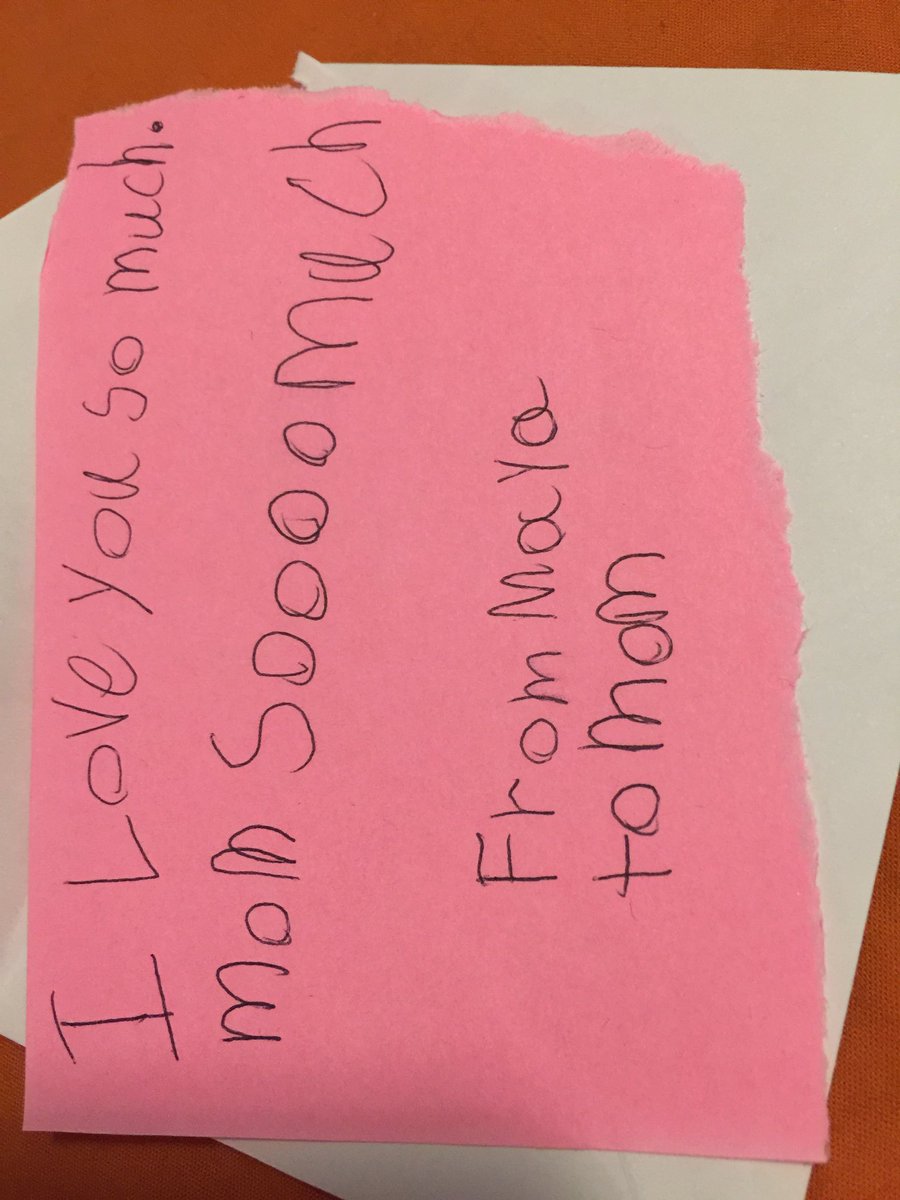 I Love you so much.
mom soooo much
From Maya
to mom